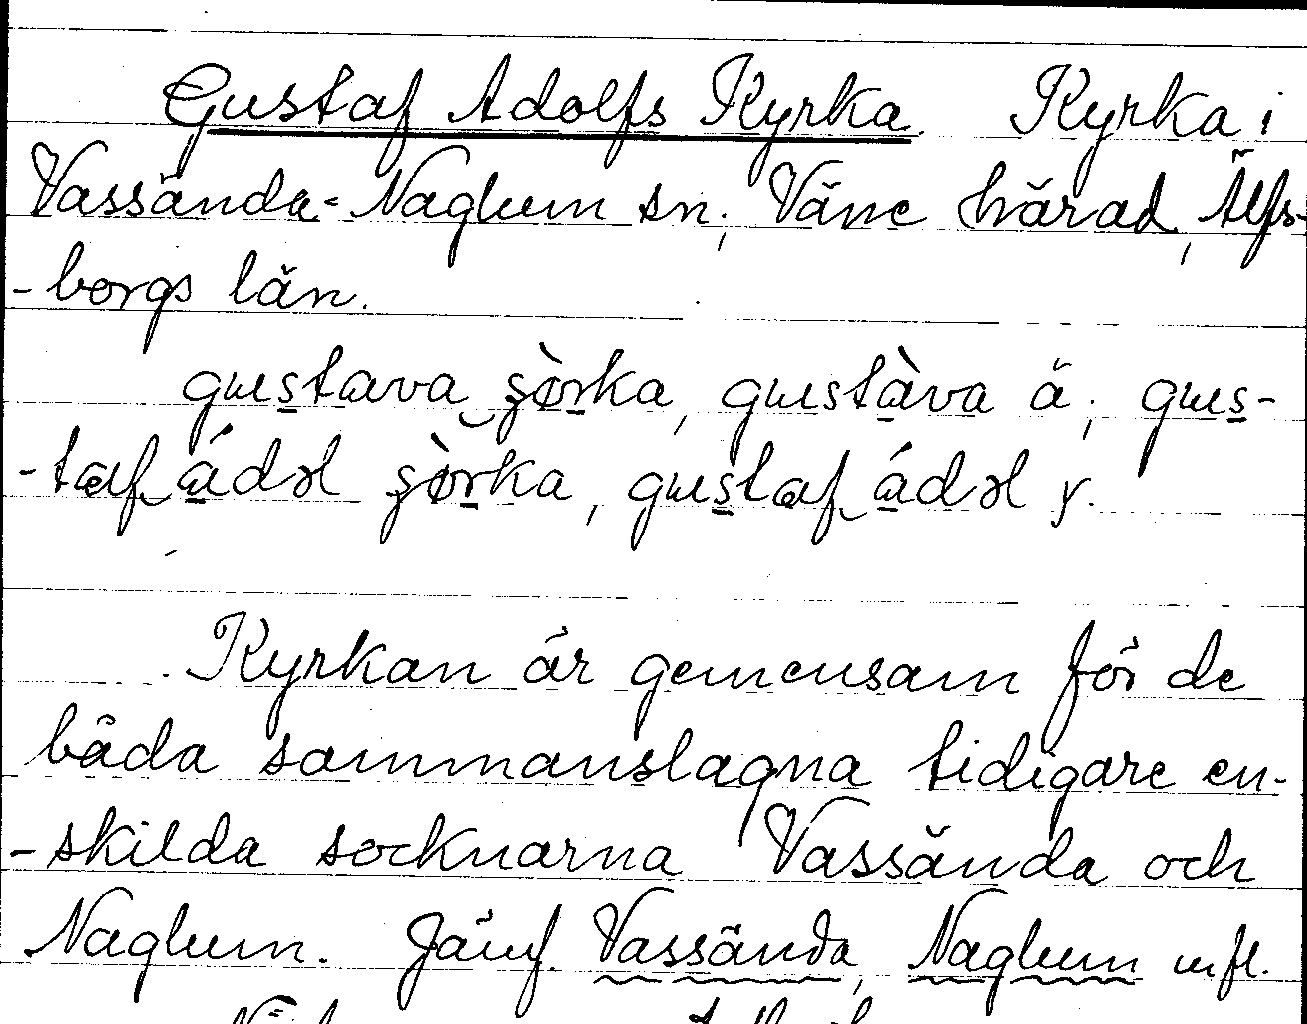 Gustaf Adolfs Kyrka. Kyrka i
Vassända-Naglum sn; Väne härad, Älfs-
-borgs län.
gustava şòrka, gustàva ä; gus-
-taf ádəl şòrka, gustaf ádəl y.
Kyrkan är gemensam för de
båda sammanslagna tidigare en-
-skilda socknarna Vassända och
Naglum. Jämf. Vassända, Naglum m fl.